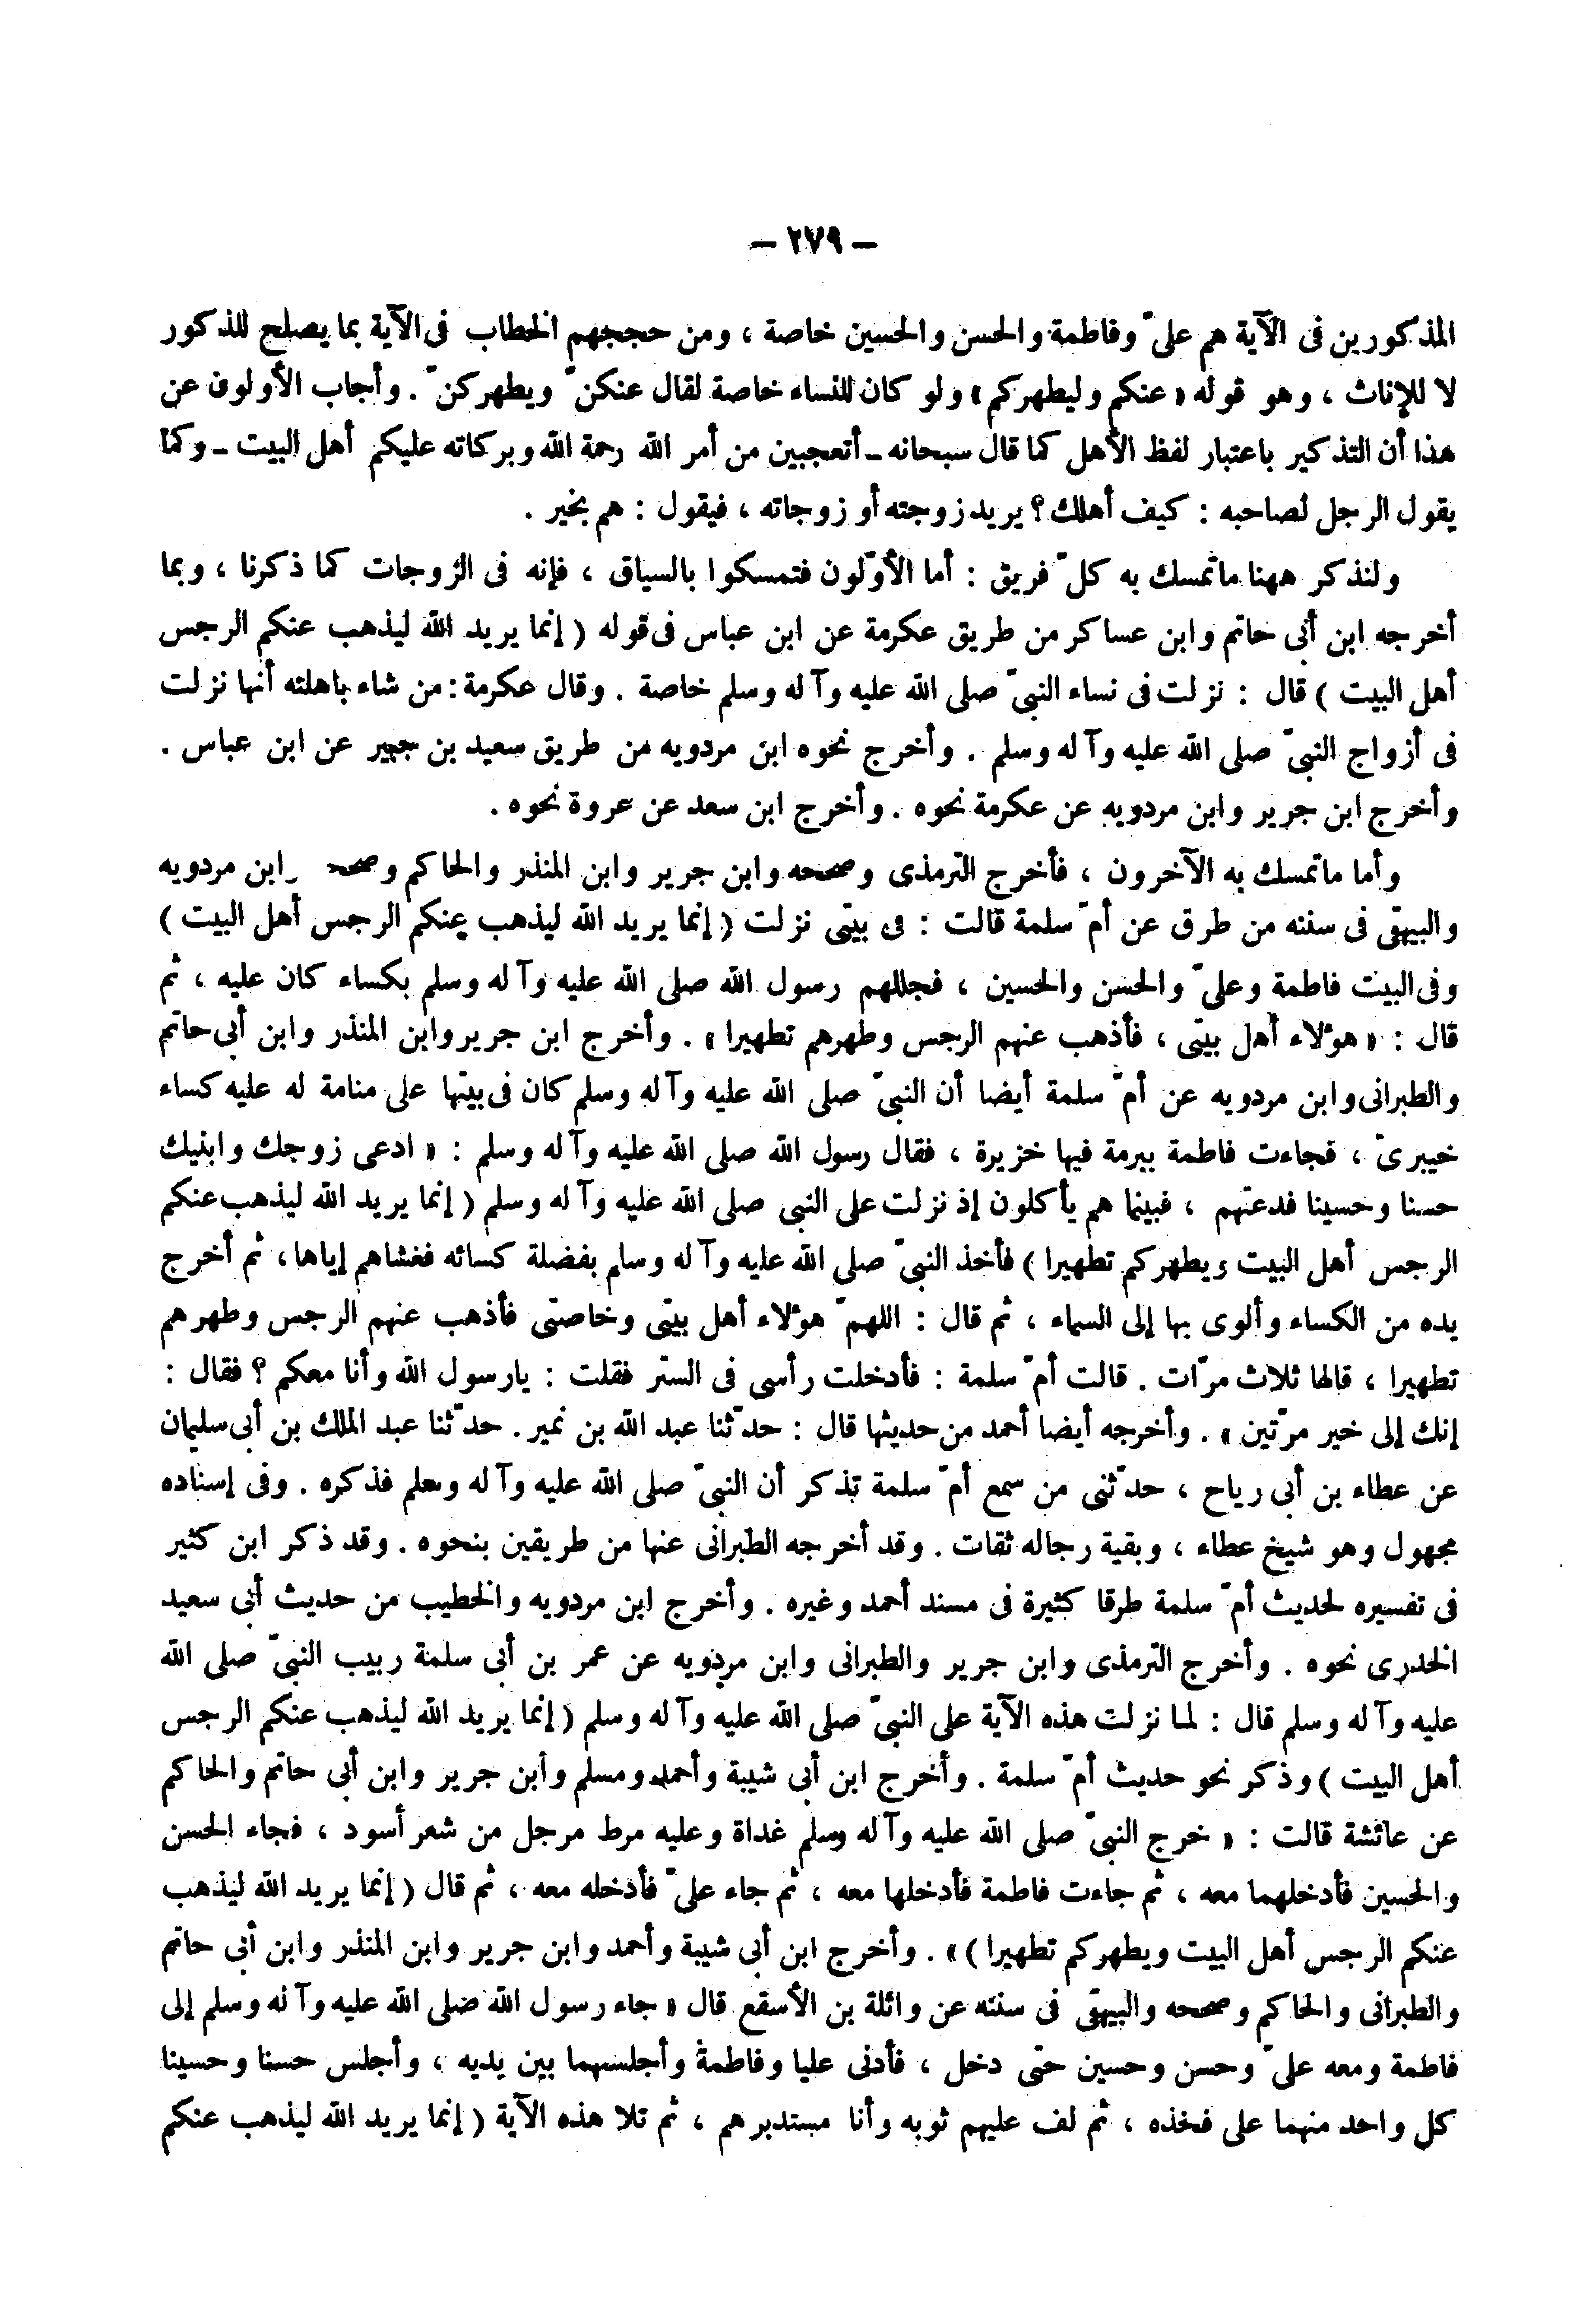 — ٢٧٩ —
المذكورين فى الآية هم علىّ وفاطمة والحسن والحسين خاصة ، ومن حججهم الخطاب فى الآية بما يصلح للذكور
لا للإناث ، وهو قوله « عنكم وليطهركم » ولو كان للنساء خاصة لقال عنكنّ ويطهركنّ . وأجاب الأولون عن
هذا أن التذكير باعتبار لفظ الأهل كما قال سبحانه ـ أتعجبين من أمر الله رحمة الله وبركاته عليكم أهل البيت ـ وكما
يقول الرجل لصاحبه : كيف أهلك ؟ يريد زوجته أو زوجاته ، فيقول : هم بخير .
ولنذكر ههنا ما تمسك به كلّ فريق : أما الأوّلون فتمسكوا بالسياق ، فإنه فى الزوجات كما ذكرنا ، وبما
أخرجه ابن أبى حاتم وابن عساكر من طريق عكرمة عن ابن عباس فى قوله ( إنما يريد الله ليذهب عنكم الرجس
أهل البيت ) قال : نزلت فى نساء النبىّ صلى الله عليه وآله وسلم خاصة . وقال عكرمة : من شاء باهلته أنها نزلت
فى أزواج النبىّ صلى الله عليه وآله وسلم . وأخرج نحوه ابن مردويه من طريق سعيد بن جبير عن ابن عباس .
وأخرج ابن جرير وابن مردويه عن عكرمة نحوه . وأخرج ابن سعد عن عروة نحوه .
وأما ما تمسك به الآخرون ، فأخرج الترمذى وصححه وابن جرير وابن المنذر والحاكم ابن مردويه
والبيهقى فى سننه من طرق عن أمّ سلمة قالت : فى بيتى نزلت ( إنما يريد الله ليذهب عنكم الرجس أهل البيت )
وفى البيت فاطمة وعلىّ والحسن والحسين ، فجللهم رسول الله صلى الله عليه وآله وسلم بكساء كان عليه ، ثم
قال : « هؤلاء أهل بيتى ، فأذهب عنهم الرجس وطهرهم تطهيرا » . وأخرج ابن جرير وابن المنذر وابن أبى حاتم
والطبرانى وابن مردويه عن أمّ سلمة أيضا أن النبىّ صلى الله عليه وآله وسلم كان فى بيتها على منامة له عليه كساء
خيبرىّ ، فجاءت فاطمة ببرمة فيها خزيرة ، فقال رسول الله صلى الله عليه وآله وسلم : « ادعى زوجك وابنيك
حسنا وحسينا فدعتهم ، فبينما هم يأكلون إذ نزلت على النبى صلى الله عليه وآله وسلم ( إنما يريد الله ليذهب عنكم
الرجس أهل البيت ويطهركم تطهيرا ) فأخذ النبىّ صلى الله عليه وآله وسلم بفضلة كسائه فغشاهم إياها ، ثم أخرج
يده من الكساء وألوى بها إلى السماء ، ثم قال : اللهمّ هؤلاء أهل بيتى وخاصتى فأذهب عنهم الرجس وطهرهم
تطهيرا ، قالها ثلاث مرّات . قالت أمّ سلمة : فأدخلت رأسى فى الستر فقلت : يا رسول الله وأنا معكم ؟ فقال :
إنك إلى خير مرّتين » . وأخرجه أيضا أحمد من حديثها قال : حدّثنا عبد الله بن نمير . حدّثنا عبد الملك بن أبى سليمان
عن عطاء بن أبى رباح ، حدّثنى من سمع أمّ سلمة تذكر أن النبىّ صلى الله عليه وآله وسلم فذكره . وفى إسناده
مجهول وهو شيخ عطاء ، وبقية رجاله ثقات . وقد أخرجه الطبرانى عنها من طريقين بنحوه . وقد ذكر ابن كثير
فى تفسيره لحديث أمّ سلمة طرقا كثيرة فى مسند أحمد وغيره . وأخرج ابن مردويه والخطيب من حديث أبى سعيد
الخدرى نحوه . وأخرج الترمذى وابن جرير والطبرانى وابن مردويه عن عمر بن أبى سلمة ربيب النبىّ صلى الله
عليه وآله وسلم قال : لما نزلت هذه الآية على النبىّ صلى الله عليه وآله وسلم ( إنما يريد الله ليذهب عنكم الرجس
أهل البيت ) وذكر نحو حديث أمّ سلمة . وأخرج ابن أبى شيبة وأحمد ومسلم وابن جرير وابن أبى حاتم والحاكم
عن عائشة قالت : « خرج النبىّ صلى الله عليه وآله وسلم غداة وعليه مرط مرجل من شعر أسود ، فجاء الحسن
والحسين فأدخلهما معه ، ثم جاءت فاطمة فأدخلها معه ، ثم جاء علىّ فأدخله معه ، ثم قال ( إنما يريد الله ليذهب
عنكم الرجس أهل البيت ويطهركم تطهيرا ) » . وأخرج ابن أبى شيبة وأحمد وابن جرير وابن المنذر وابن أبى حاتم
والطبرانى والحاكم وصححه والبيهقى فى سننه عن واثلة بن الأسقع قال « جاء رسول الله صلى الله عليه وآله وسلم إلى
فاطمة ومعه علىّ وحسن وحسين حتى دخل ، فأدنى عليا وفاطمة وأجلسهما بين يديه ، وأجلس حسنا وحسينا
كل واحد منهما على فخذه ، ثم لف عليهم ثوبه وأنا مستدبرهم ، ثم تلا هذه الآية ( إنما يريد الله ليذهب عنكم